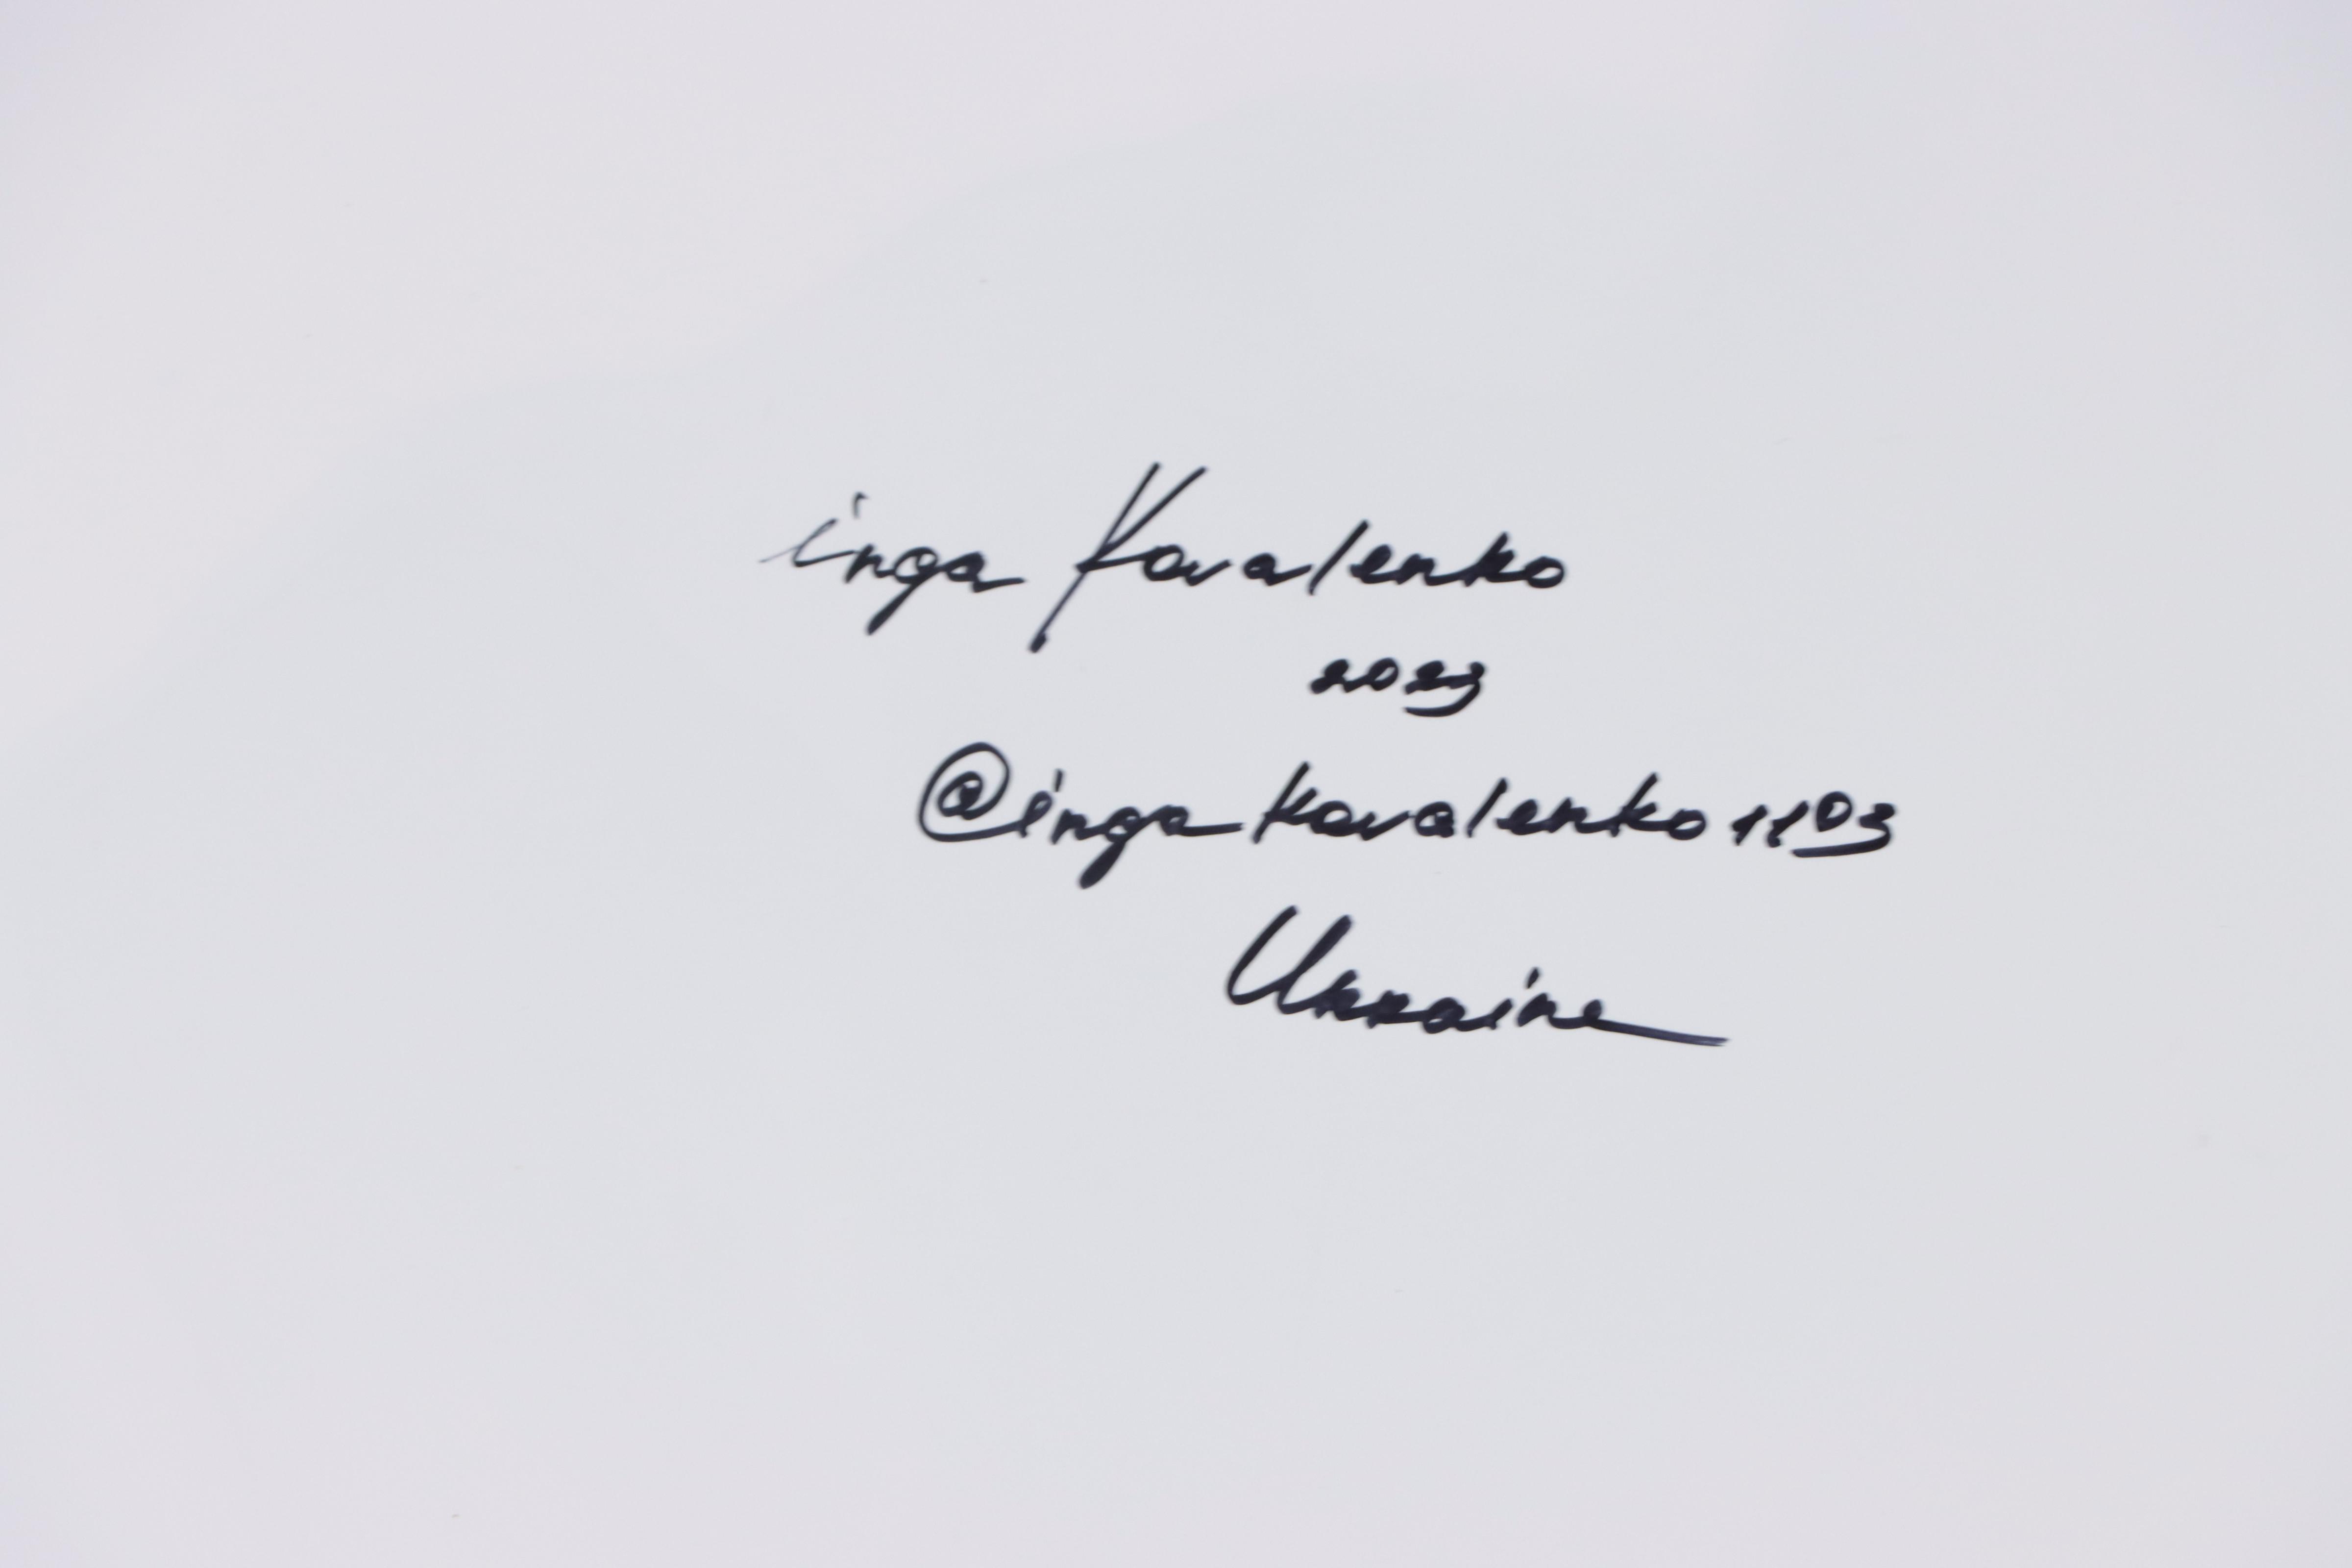 inga Kovalenko
2023
@ingakovalenko1103
Ukraine